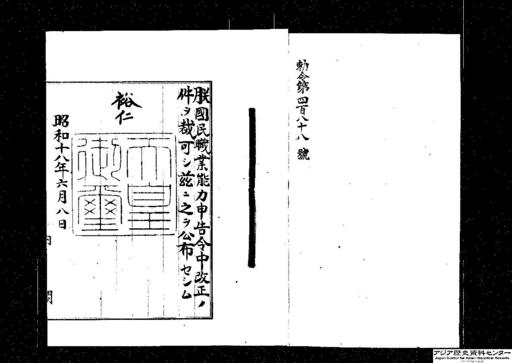 勅令第四百八十八號
朕國民職業能力申告令中改正ノ
件ヲ裁可シ茲ニ之ヲ公布セシム
裕仁
天皇
御璽
昭和十八年六月八日
内閣
アジア歴史資料センター
Japan Center for Asian Historical Records